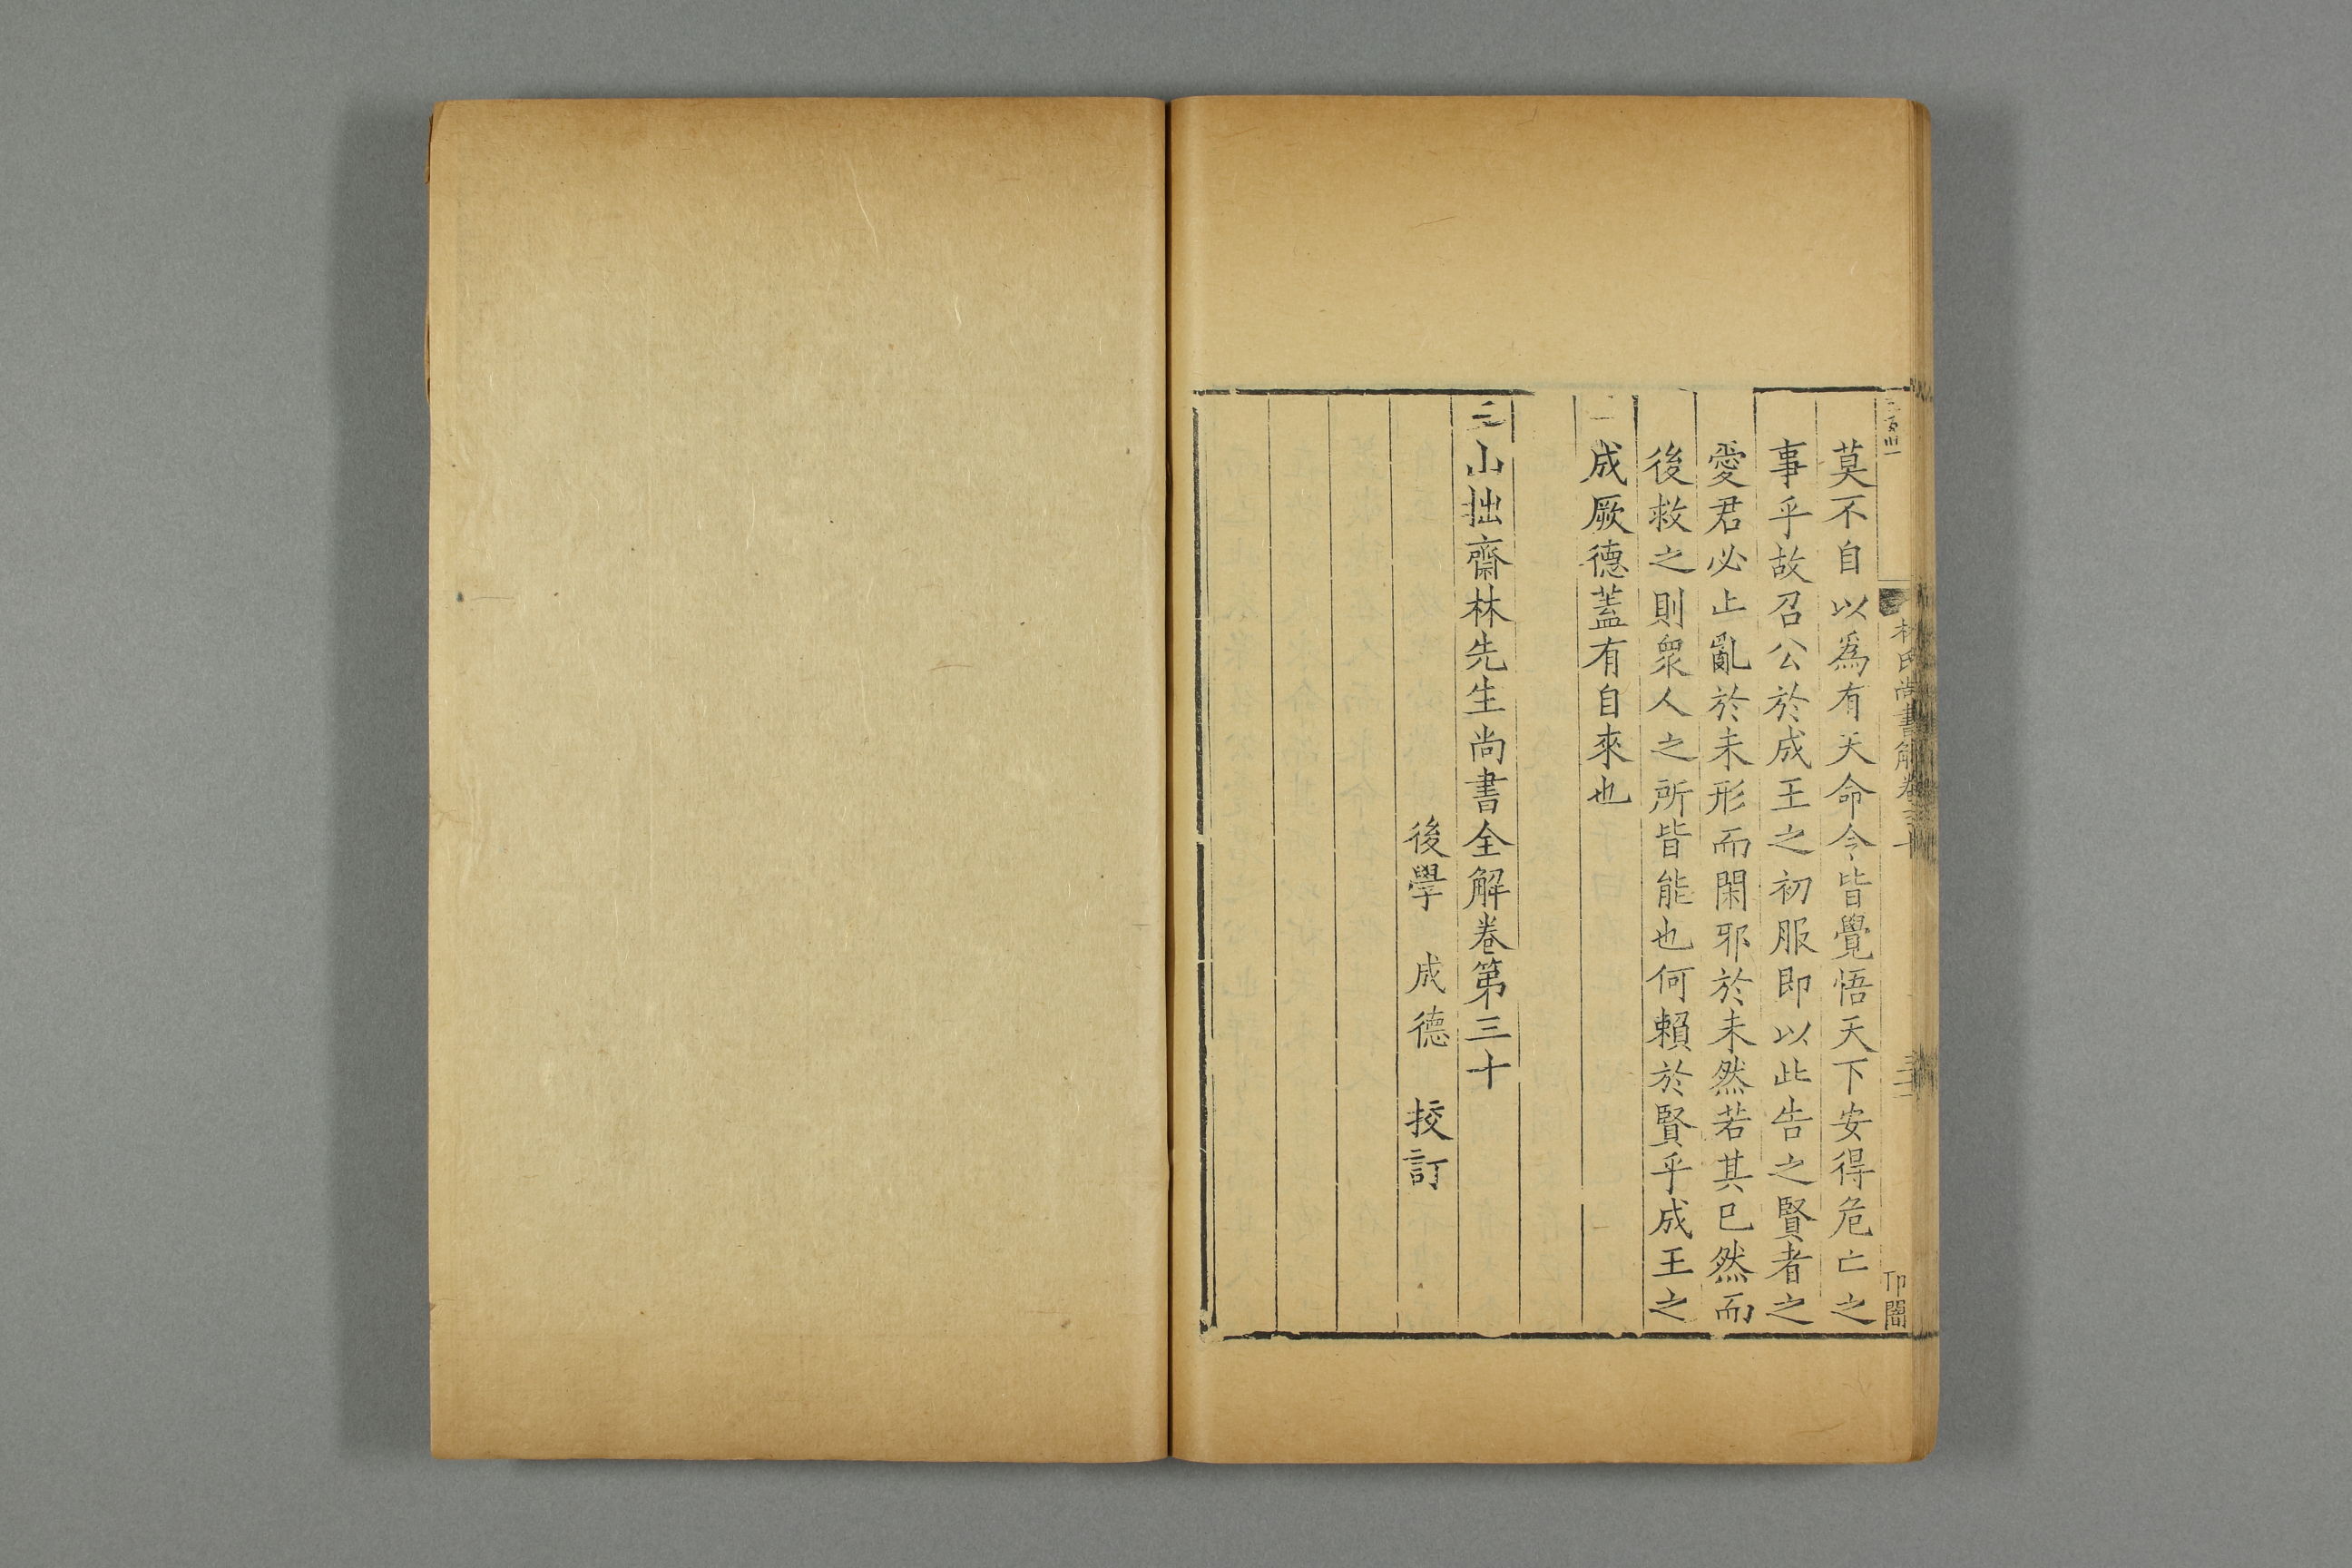 林氏尚書解卷三十
莫不自以爲有天命今皆覺悟天下安得危亡之
事乎故召公於成王之初服即以此告之賢者之
愛君必止亂於未形而閑邪於未然若其已然而
後救之則衆人之所皆能也何賴於賢乎成王之
成厥德蓋有自來也
三山拙齋林先生尚書全解卷第三十
後學 成德 挍訂